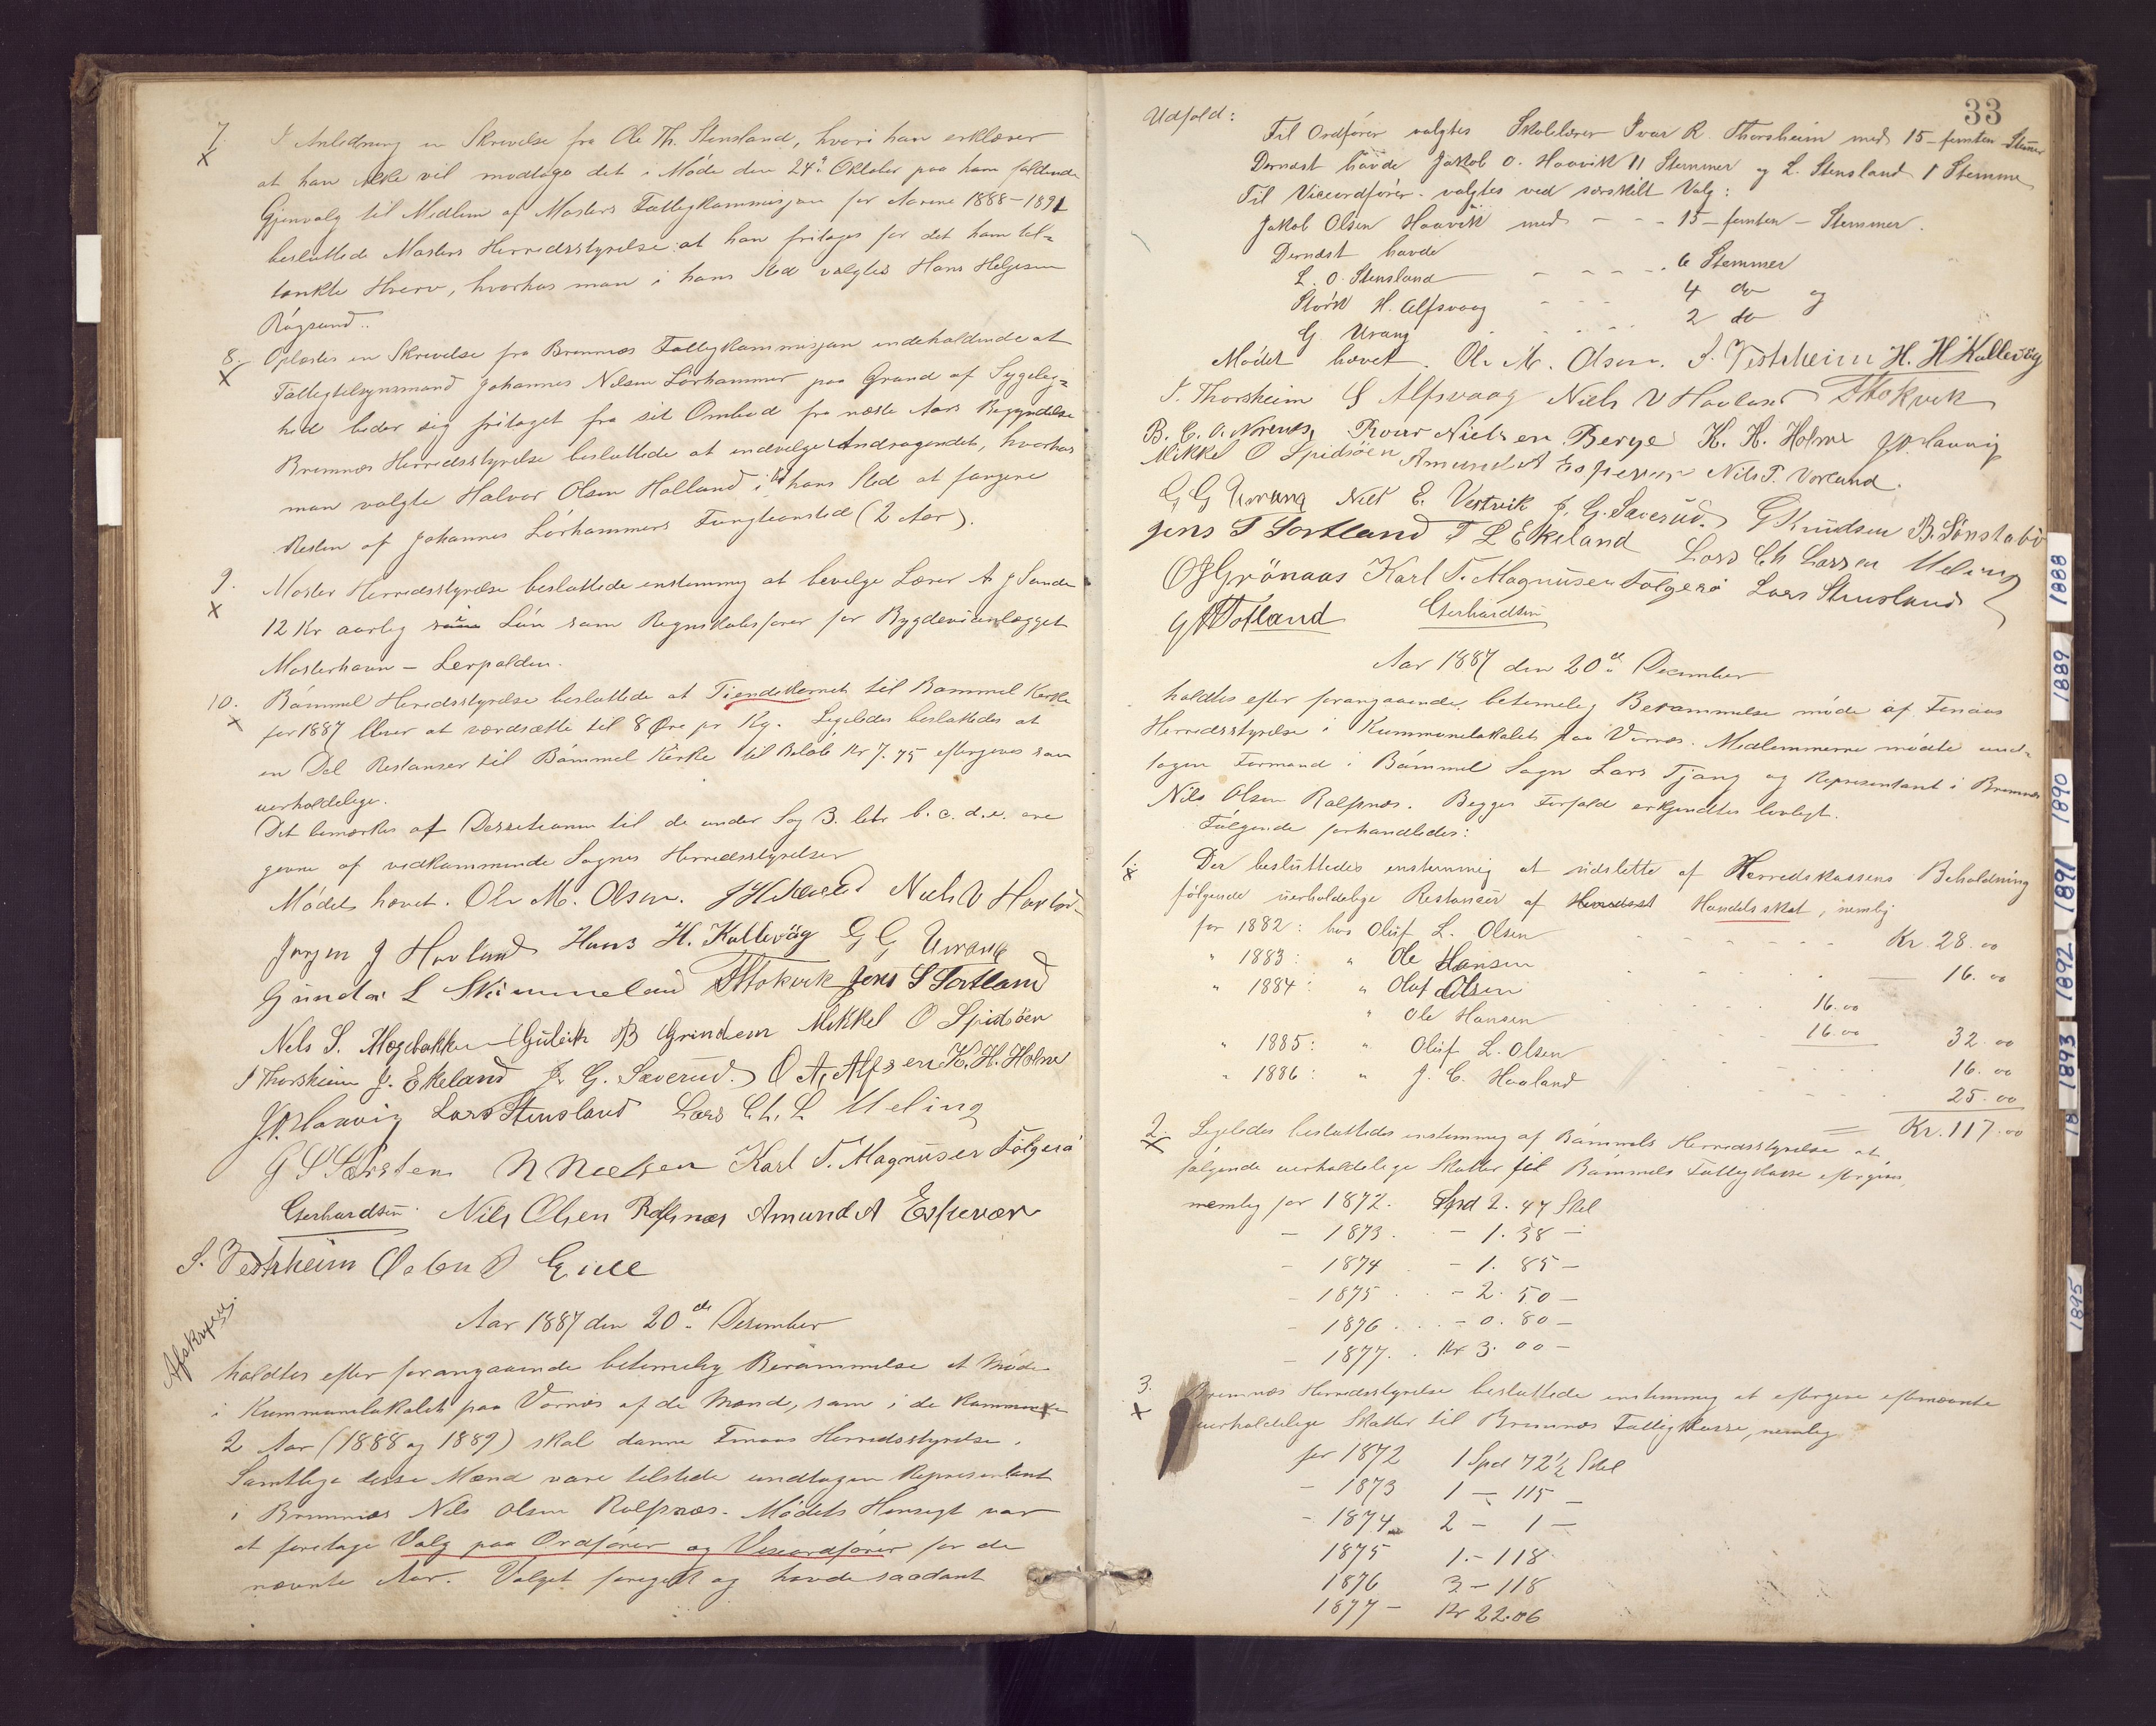 7.
I Anledning en Skrivelse fra Ole Th. Stensland, hvori han erklærer
at han ikke vil modtage det i Møde den 24de Oktober paa ham faldende
Gjenvalg til Medlem af Mosters Fattigkommisjon for Aarene 1888-1891
besluttede Mosters Herredsstyrelse: at han fritages for det ham til-
tænkte Hverv, hvorhos man i hans Sted valgtes Hans Helgesen
Røgsund.
8.
Oplæstes en Skrivelse fra Bremnæs Fattigkommisjon indeholdende at
Fattigtilsynsmand Johannes Nilsen Lørhammer paa Grund af Sygelig-
hed beder sig fritaget fra sit Ombud fra næste Aars Begyndelse
Bremnæs Herredsstyrelse besluttede at indvilge Andragendet, hvorhos
man valgte Halvor Olsen Holland i hans Sted at fungere
Resten af Johannes Lørhammers Fungtionstid (2 Aar).
9.
Moster Herredsstyrelse besluttede enstemmig at bevilge Lærer A J Sande
12 Kr aarlig Løn som Regnskabsfører for Bygdeveianlægget
Mosterhavn - Lerpolden.
10.
Bømmel Herredsstyrelse besluttede at Tiendekornet til Bømmel Kirke
for 1887 bliver at værdsætte til 8 Øre pr Kg. Ligeledes besluttedes at
en Del Restanser til Bømmel Kirke til Beløb Kr 7.75 eftergives som
uerholdelige.
Det bemærkes af Desisionerne til de under Sag 3. litr b. c. d. e. ere
givne af vedkommende Sognes Herredsstyrelser
Mødet hævet. Ole M. Olsen. Niels V Havlsd
Jørgen J Hovland Hans H. Kallevåg G G Urang
Gunder L Skimmeland T Stokvik Jens S Tortland
Nels S. Mægebakke Gulleik B Grindem Mikkel O Spidsöen
I Thorsheim J. Ekeland J. G. Sæverud. O A, Alfsen K. H. Holme
J. O. Haavig Lars Stensland Lars Ch. L Meling
G S N Nielsen Karl T. Magnusen Følgerø
Gerhardsen. Nils Olsen Rolfsnæs Amund A Espevær
S. Vestrheim Eide
Afskreven.
Aar 1887 den 20de Desember
holdtes efter forangaaende betimelig Berammelse et Møde
i Kummunelokalet paa Vornes af de Mænd, som i de kommende
2 Aar (1888 og 1889) skal danne Finaas Herredsstyrelse.
Samtlige disse Mænd vare tilstede undtagen Representant
i Bremnæs Nils Olsen Rolfsnæs. Mødets Hensigt var
at foretage Valg paa Ordfører og Viseordfører for de
nævnte Aar. Valget foregik og havde saadant
33
Udfald:
Til Ordfører valgtes Skolelærer Ivar R. Thorsheim med 15 - femten - Stemmer
Dernæst havde Jakob O. Haavik 11 Stemmer og L. Stensland 1 Stemme
Til Viceordfører valgtes ved særskilt Valg:
Jakob Olsen Haavik med - - - 15 - femten - Stemmer.
Dernæst havde
L. O. Stensland - - - - 6 Stemmer
Størk H. Alfsvaag - - - 4 do og
G Urang 2 do
Mødet hævet. Ole M. Olsen. S. Vestrheim H. H Kallevåg
I. Thorsheim S Alfsvaag Niels V Havlsd T Stokvik
B. C. A. Norenes, Roar Nielsen Berge K. H. Holme J. O. Haavig
Mikkel O Spidsöen Amund A Espevær Nils T. Vorland.
G G Urang Nils E. Vestvik J. G. Sæverud. G Knudsen B. Sønstabø
Jens S Tortland T L Ekeland Lars Ch Larsen Meling
O J Grönaas Karl T. Magnusen Følgerø Lars Stensland
G Totland Gerhardsen
Aar 1887 den 20de December
holdtes efter forangaaende, betimelig Berammelse møde af Finaas
Herredsstyrelse i Kummunelokalet paa Vornes. Medlemmerne mødte und-
tagen Formand i Bømmel Sogn Lars Tjong og Representant i Bremnæs
Nils Olsen Rolfsnæs. Begges Forfald erkjendtes lovligt.
Følgende forhandledes:
1.
Der besluttedes enstemmig at udslette af Herredskassens Beholdning
følgende uerholdelige Restancer af Handelsskat, nemlig
for 1882: hos Oluf L. Olsen Kr. 28.00
" 1883: " Ole Hansen 16.00
" 1884: " Oluf Olsen 16.00
" Ole Hansen 16.00 32.00
" 1885: " Oluf L. Olsen 16.00
" 1886: " J. C. Haaland 25.00
Kr. 117.00
2.
Ligeledes besluttedes enstemmig af Bømmels Herredsstyrelse at
følgende uerholdelige Skatter til Bømmels Fattigkasse eftergives,
nemlig for 1872. Spd 2. 47 Skil
- 1873. - 1. 38 -
- 1874 - 1. 85 -
- 1875 - 2. 50 -
- 1876 - 0. 80 -
- 1877. Kr 3. 00 -
3.
Bremnæs Herredsstyrelse besluttede enstemmig at eftergive efternævnte
uerholdelige Skatter til Bremnæs Fattigkasse, nemlig
for 1872 1 Spd 72½ Skil
- 1873 1 - 115 -
- 1874 2 - 1 -
1875 1. - 118
1876 3 - 118
1877 - Kr 22.06
1888
1889
1890
1891
1892
1893
18
1895